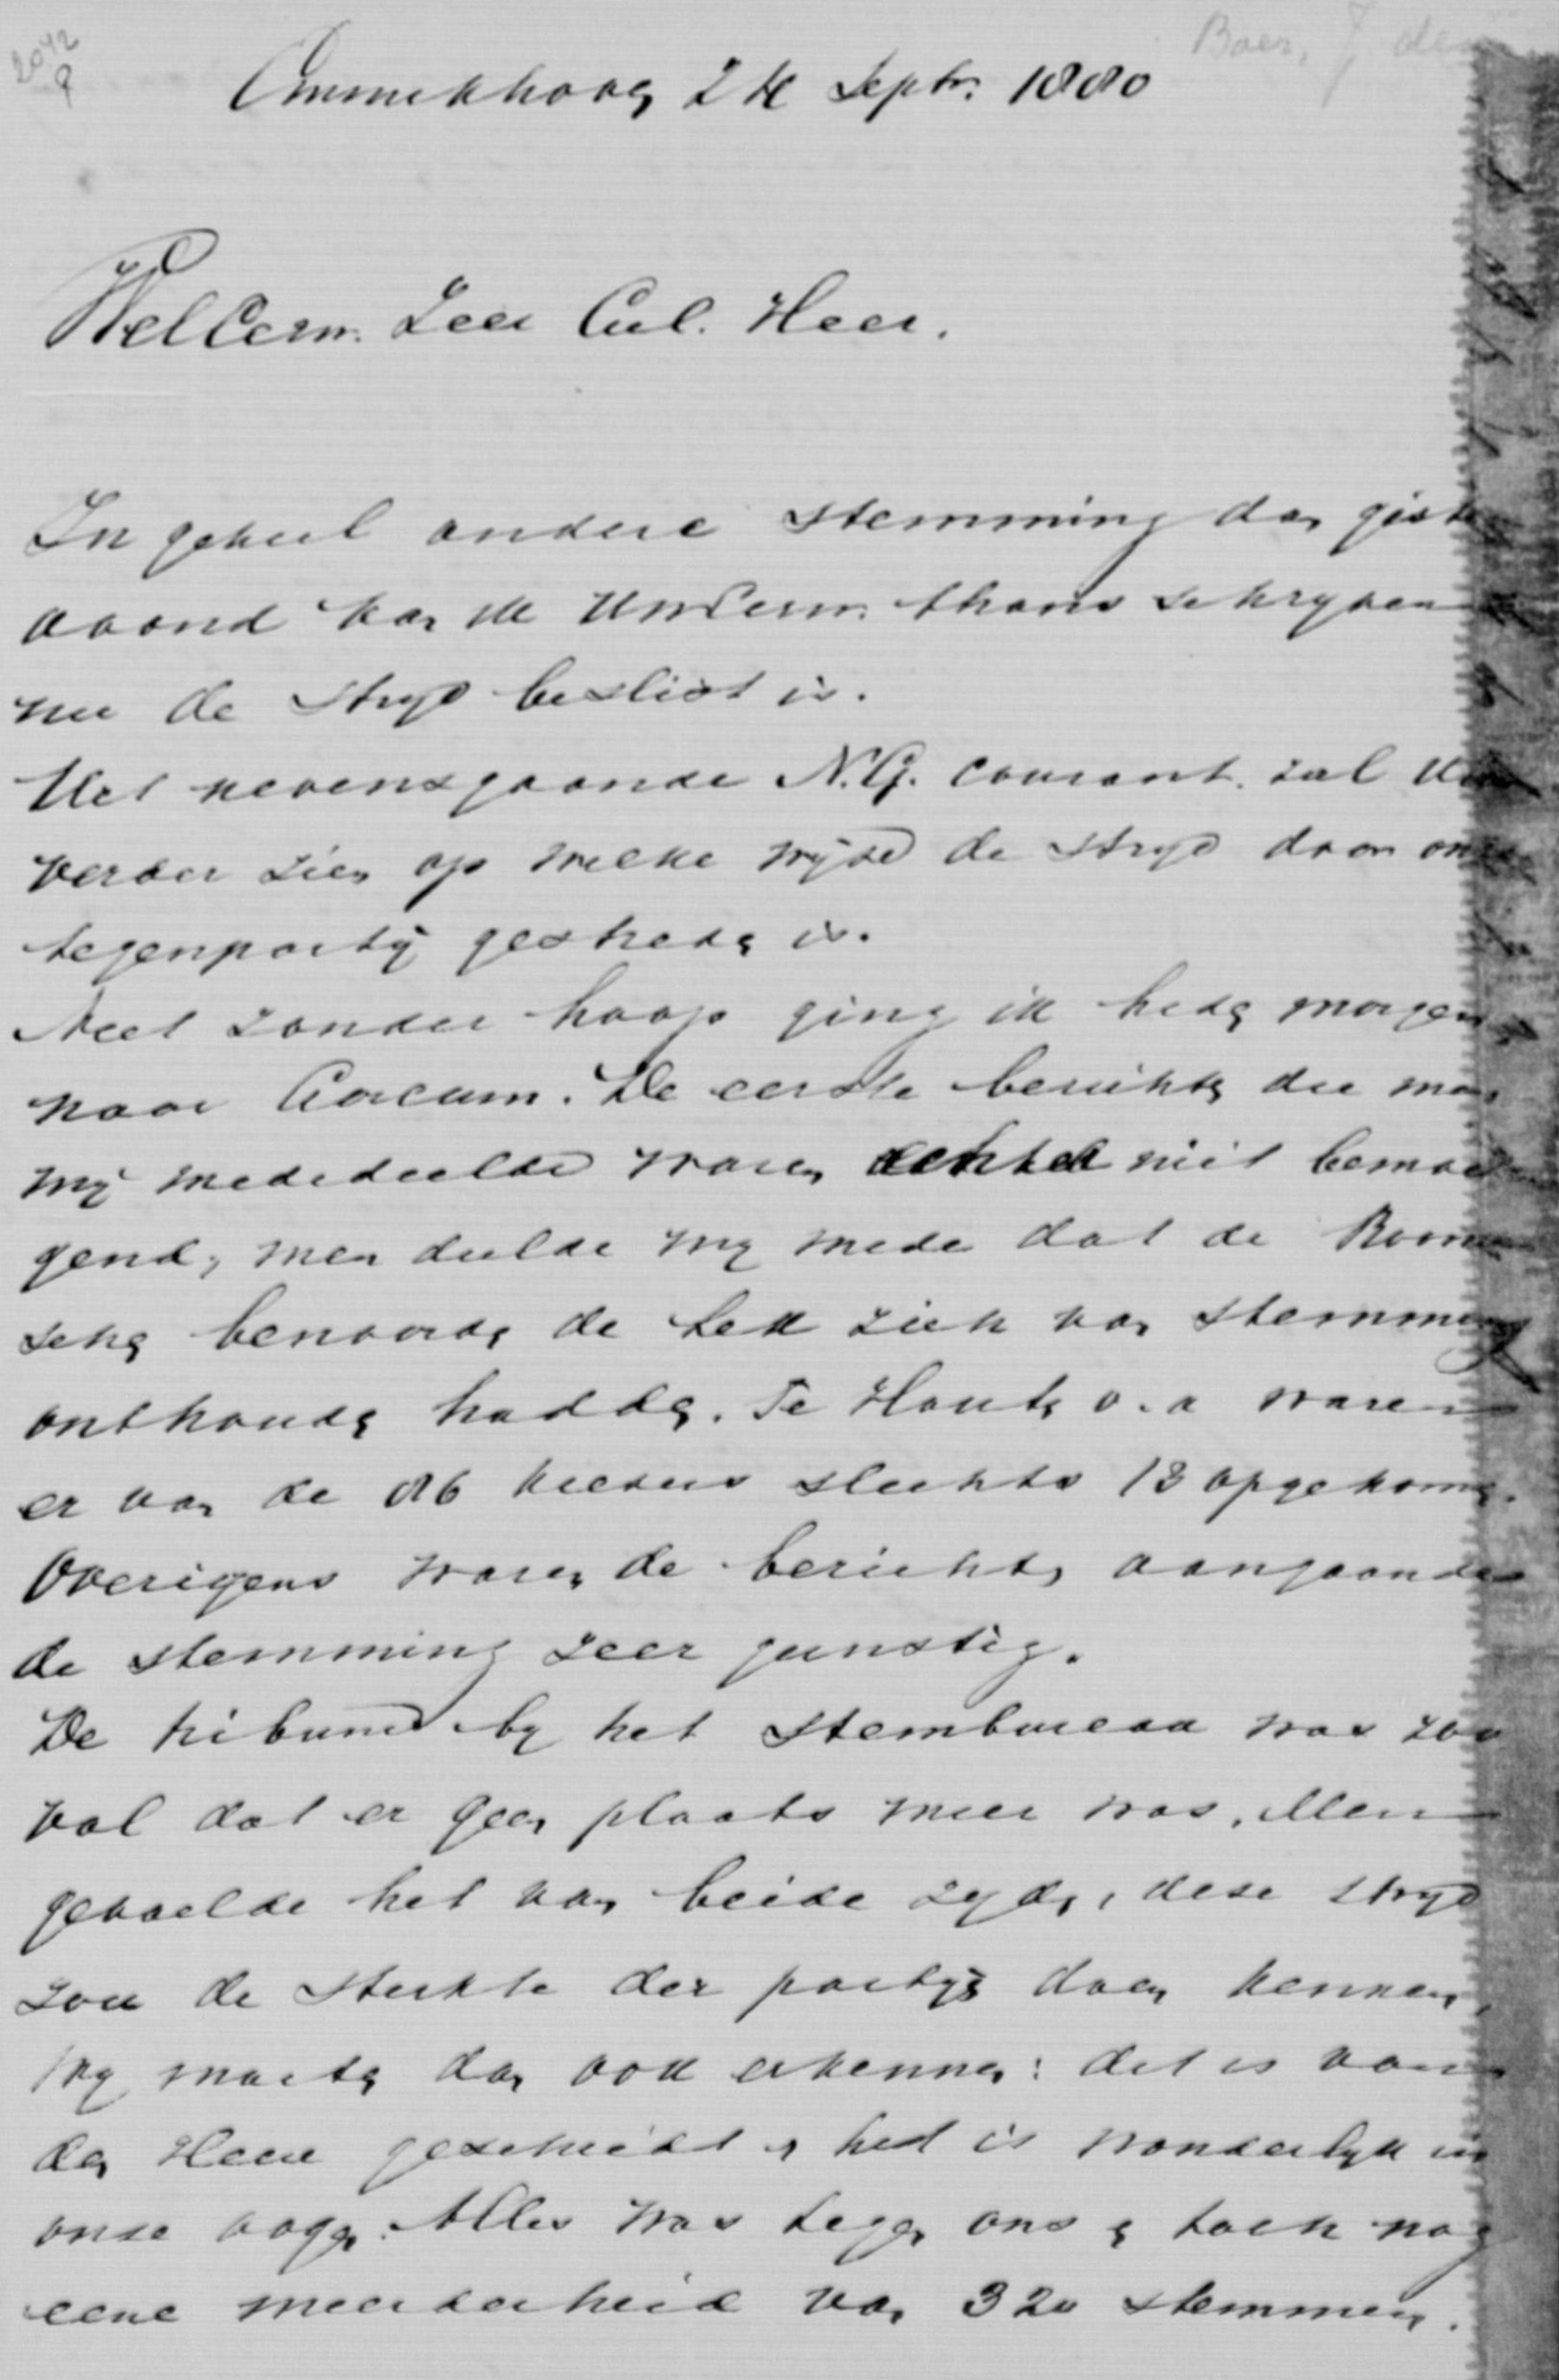 2042
9
Boer, J. den
Ammekhoog 24 Septr. 1880
WelEerw. Zeer Gel. Heer.
In geheel andere stemming dan gister
avond kan ik UwEerw. thans schryven
nu de stryd beslist is.
Uit nevensgaande N.G. courant zal U
verder zien op welke wyze de stryd door onze
tegenparty gestreden is.
Niet zonder hoop ging ik heden morgen
naar Gorcum. De eerste berichten die men
my mededeelde waren echter niet bemoe-
gend, men deelde my mede dat de Room
schen benoorden de Lek zich van stemming
onthouden hadden. Te Houten o.a waren
er van de 86 kiezers slechts 13 opgekomen.
Overigens waren de berichten aangaande
de stemming zeer gunstig.
De tribune by het stembureau was zoo
vol dat er geen plaats meer was. Men
gevoelde het van beide zyden, deze stryd
zou de sterkte der partyen doen kennen,
Wy moeten dan ook erkennen: dit is van
den Heere geschied en het is wonderlyk in
onze oogen. Alles was tegen ons en toch nog
eene meerderheid van 320 stemmen.